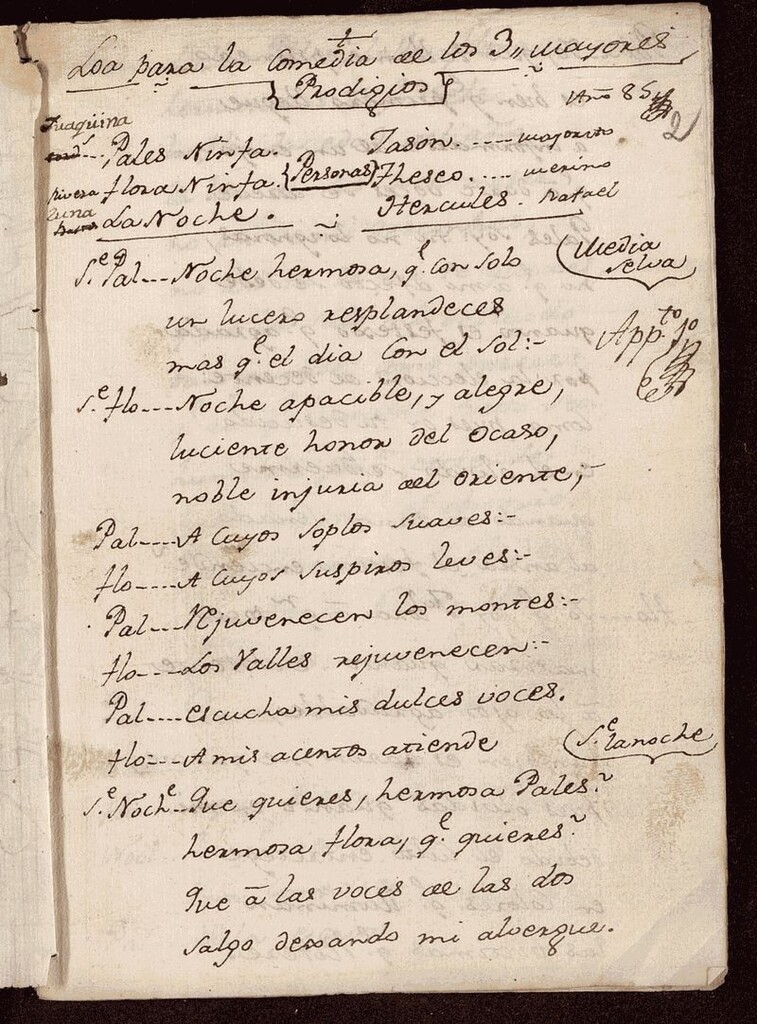 Loa para la Comedia de los 3,, mayores
Prodigios
Año 85
2
Juaquina
Pales Ninfa. Jasòn. ---- mayorito
Rivera Flora Ninfa. Personas Theseo. ---- merino
Luna La Noche. Hercules. Rafael
S.e Pal--- Noche hermosa, q.e con solo
Media
selva
un lucero resplandeces
mas q.e el dia con el sol:-
App.to 1o
S.e flo--- Noche apacible, y alegre,
luciente honor del Ocaso,
noble injuria del Oriente,-
Pal---- A Cuyos soplos suaves:-
flo---- A Cuyos suspiros leves:-
Pal--- Rejuvenecen los montes:-
flo--- Los Valles rejuvenecen:-
Pal---- escucha mis dulces voces.
flo--- A mis acentos atiende
S.e la noche
S.e Noch.e Que quieres, hermosa Pales?
hermosa flora, q.e quieres?
Que â las voces de las dos
salgo dexando mi alvergue.